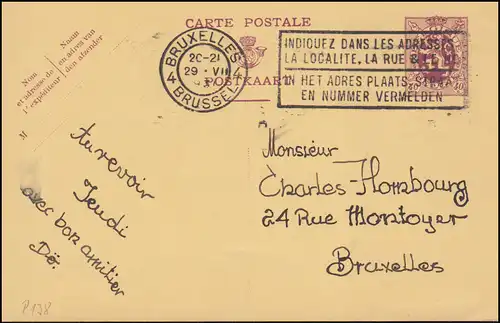 CARTE POSTALE
POSTKAART
Nom
et adresse de
l'expéditeur
Naam
en adres van
den afzender
M
BRUXELLES
20-21
29 · VII
4 4
BRUSSEL
INDIQUEZ DANS LES ADRESSES
LA LOCALITE, LA RUE &
IN HET ADRES PLAATS,
EN NUMMER VERMELDEN
40 40
Monsieur
Charles Hombourg
24 Rue Montoyer
Bruxelles
Au revoir
Jeudi
avec bon
Dé.
P178